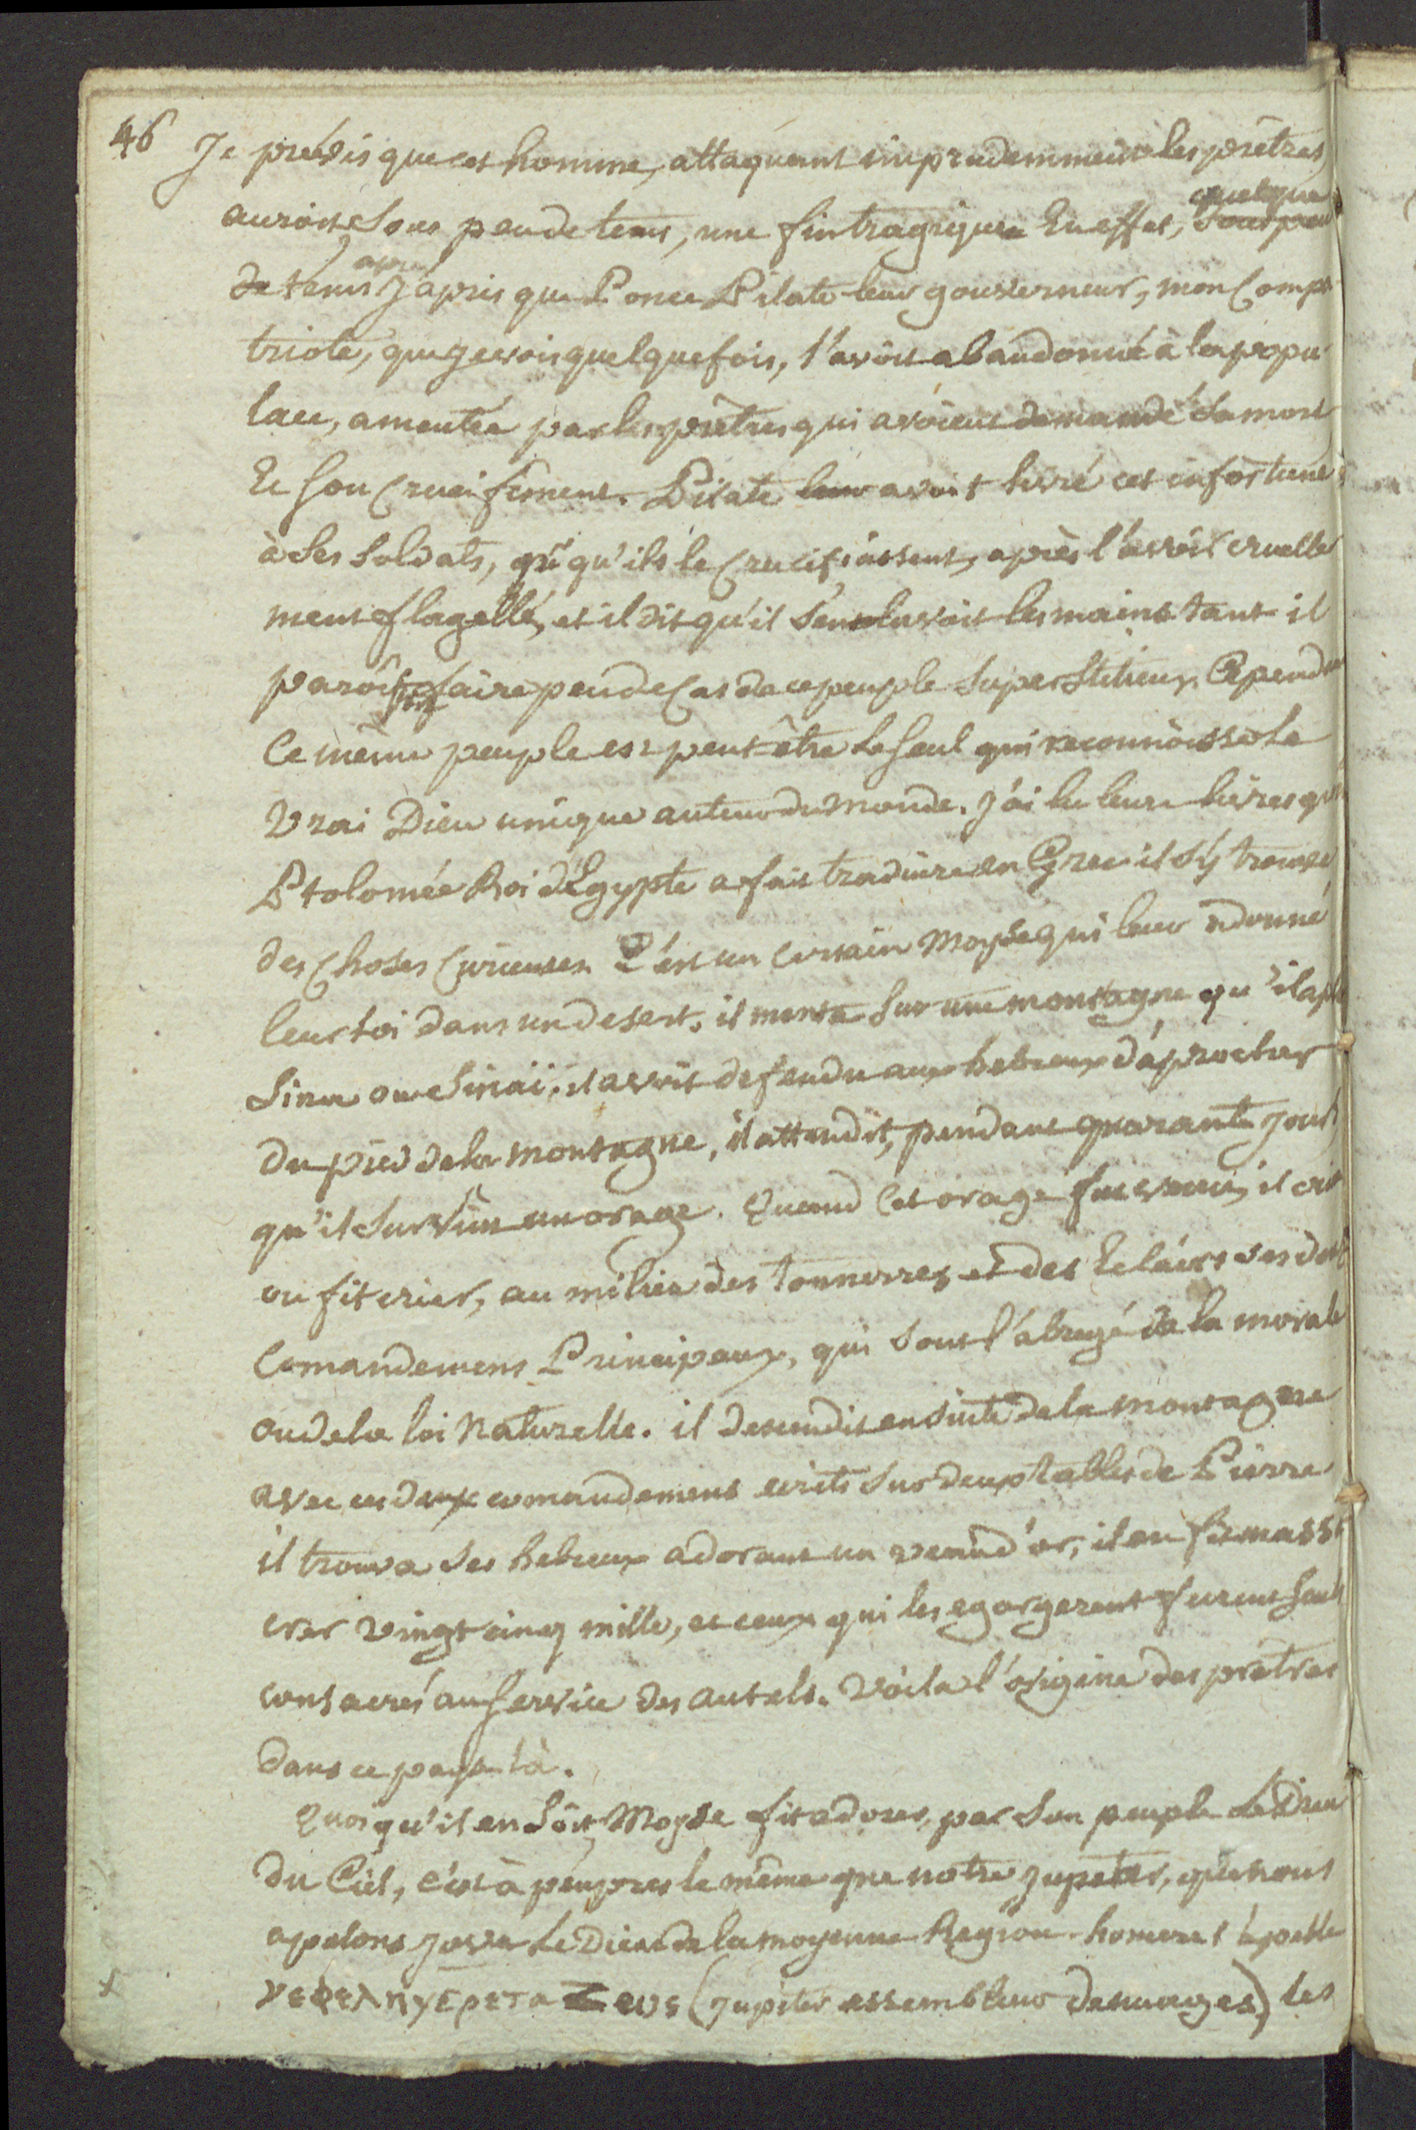 46
Je prévis que cet homme, attaquant imprudemment les prêtres
auroit sous peu de tems, une fin tragique. En effet, quelque
de tems après J'apris que Ponce Pilate leur gouverneur, mon Compa
triote, que je vois quelque fois, l'avoit abandonné à la popu
lace, ameutée par les prêtres qui avoient demandé sa mort
Et son Crucifiment. Pilate leur avoit livré cet infortuné
à ses soldats, qu'ils le Crucifiassent, après l'avoir cruelle
ment flagellé, et il dit qu'il s'en lavoit les mains tant il
paroît faire peu de Cas de ce peuple superstitieux. Cependant
Ce même peuple est peut être le seul qui reconnoisse le
Vrai Dieu unique auteur du Monde. J'ai lu leurs livres que
Ptolomée Roi d'Egypte a fait traduire en Grec il s'y trouve
des Choses Curieuses. C'est un certain Moyse qui leur a donné
leur loi dans un desert. il monta sur une montagne qu'il apele
Sina ou Sinaï. il avoit defendu aux hebreux d'aprocher
du pied de la montagne, il attendit, pendant quarante jours
qu'il survint un orage. Quand Cet orage fut venu, il cria
ou fit crier, au milieu des tonnerres et des Eclairs ses dix
Comandemens Principaux, qui sont l'abregé de la morale
ou de la loi Naturelle. il descendit ensuite de la montagne
avec ces deux comandemens ecrits sur deux tables de Pierre
il trouva ses hebreux adorant un veau d'or, il en fit massa
crer vingt cinq mille, et ceux qui les egorgerent furent seuls
consacrés au service des autels. Voila l'origine des prêtres
dans ce pays là.
Quoi qu'il en soit Moyse fit adorer, par son peuple le Dieu
du Ciel, c'est à peu pres le même que notre Jupiter, que nous
apelons Jova le Dieu de la moyenne Region. homere l'apelle
νεφεληγερετα Ζευς (Jupiter assembleur de nuages) les
x